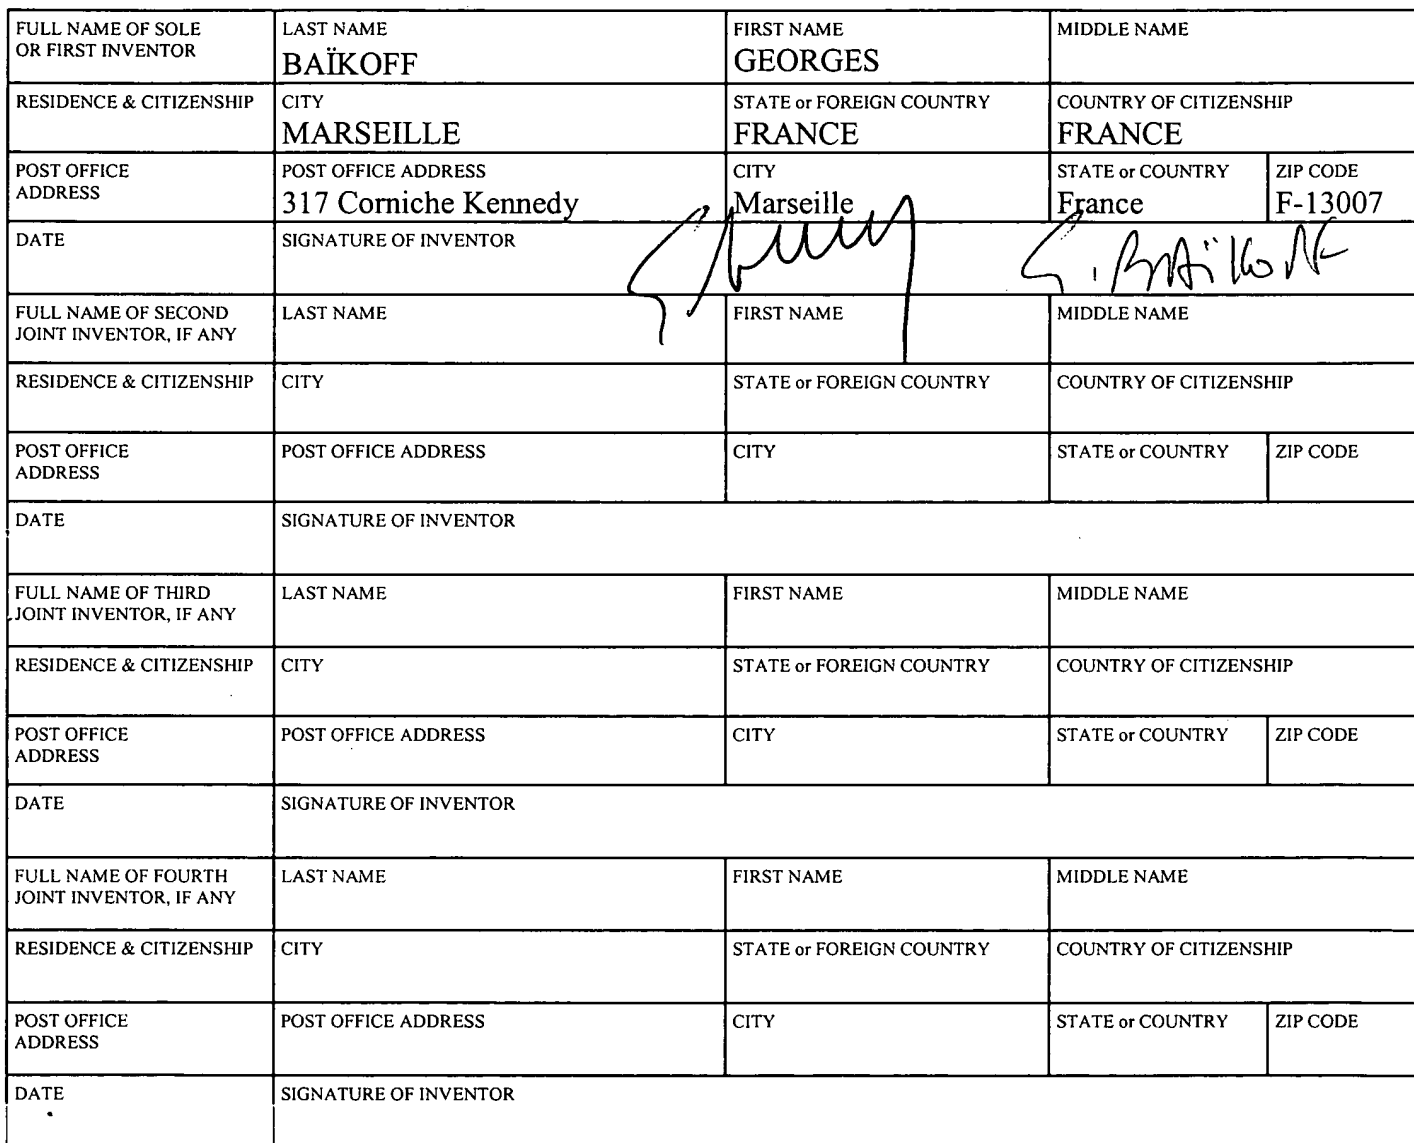 FULL NAME OF SOLE OR FIRST INVENTOR LAST NAME FIRST NAME MIDDLE NAME
BAÏKOFF GEORGES
RESIDENCE & CITIZENSHIP CITY STATE or FOREIGN COUNTRY COUNTRY OF CITIZENSHIP
MARSEILLE FRANCE FRANCE
POST OFFICE ADDRESS POST OFFICE ADDRESS CITY STATE or COUNTRY ZIP CODE
317 Corniche Kennedy Marseille France F-13007
DATE SIGNATURE OF INVENTOR
G. BAÏKOFF
FULL NAME OF SECOND JOINT INVENTOR, IF ANY LAST NAME FIRST NAME MIDDLE NAME
RESIDENCE & CITIZENSHIP CITY STATE or FOREIGN COUNTRY COUNTRY OF CITIZENSHIP
POST OFFICE ADDRESS POST OFFICE ADDRESS CITY STATE or COUNTRY ZIP CODE
DATE SIGNATURE OF INVENTOR
FULL NAME OF THIRD JOINT INVENTOR, IF ANY LAST NAME FIRST NAME MIDDLE NAME
RESIDENCE & CITIZENSHIP CITY STATE or FOREIGN COUNTRY COUNTRY OF CITIZENSHIP
POST OFFICE ADDRESS POST OFFICE ADDRESS CITY STATE or COUNTRY ZIP CODE
DATE SIGNATURE OF INVENTOR
FULL NAME OF FOURTH JOINT INVENTOR, IF ANY LAST NAME FIRST NAME MIDDLE NAME
RESIDENCE & CITIZENSHIP CITY STATE or FOREIGN COUNTRY COUNTRY OF CITIZENSHIP
POST OFFICE ADDRESS POST OFFICE ADDRESS CITY STATE or COUNTRY ZIP CODE
DATE SIGNATURE OF INVENTOR